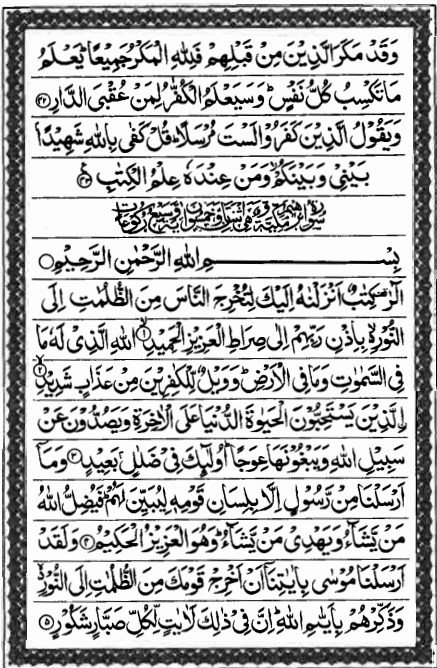 وَقَدْ مَكَرَ الَّذِيْنَ مِنْ قَبْلِهِمْ فَلِلّٰهِ الْمَكْرُ جَمِيْعًا ؕ يَعْلَمُ
مَا تَكْسِبُ كُلُّ نَفْسٍ ؕ وَسَيَعْلَمُ الْكُفّٰرُ لِمَنْ عُقْبَى الدَّارِ ﴿۴۲﴾
وَيَقُوْلُ الَّذِيْنَ كَفَرُوْا لَسْتَ مُرْسَلًا ؕ قُلْ كَفٰى بِاللّٰهِ شَهِيْدًۢا
بَيْنِيْ وَبَيْنَكُمْ ۙ وَمَنْ عِنْدَهٗ عِلْمُ الْكِتٰبِ ﴿۴۳﴾
بِسْمِ اللّٰهِ الرَّحْمٰنِ الرَّحِيْمِ
الٓرٰ ۟ كِتٰبٌ اَنْزَلْنٰهُ اِلَيْكَ لِتُخْرِجَ النَّاسَ مِنَ الظُّلُمٰتِ اِلَى
النُّوْرِ ۙ۬ بِاِذْنِ رَبِّهِمْ اِلٰى صِرَاطِ الْعَزِيْزِ الْحَمِيْدِ ﴿۱﴾ اللّٰهِ الَّذِيْ لَهٗ مَا
فِي السَّمٰوٰتِ وَمَا فِي الْاَرْضِ ؕ وَوَيْلٌ لِّلْكٰفِرِيْنَ مِنْ عَذَابٍ شَدِيْدِ ﴿۲﴾
ۣالَّذِيْنَ يَسْتَحِبُّوْنَ الْحَيٰوةَ الدُّنْيَا عَلَى الْاٰخِرَةِ وَيَصُدُّوْنَ عَنْ
سَبِيْلِ اللّٰهِ وَيَبْغُوْنَهَا عِوَجًا ؕ اُولٰٓئِكَ فِيْ ضَلٰلٍۭ بَعِيْدٍ ﴿۳﴾ وَمَاۤ
اَرْسَلْنَا مِنْ رَّسُوْلٍ اِلَّا بِلِسَانِ قَوْمِهٖ لِيُبَيِّنَ لَهُمْ ؕ فَيُضِلُّ اللّٰهُ
مَنْ يَّشَآءُ وَيَهْدِيْ مَنْ يَّشَآءُ ؕ وَهُوَ الْعَزِيْزُ الْحَكِيْمُ ﴿۴﴾ وَلَقَدْ
اَرْسَلْنَا مُوْسٰى بِاٰيٰتِنَاۤ اَنْ اَخْرِجْ قَوْمَكَ مِنَ الظُّلُمٰتِ اِلَى النُّوْرِ ۙ۬
وَذَكِّرْهُمْ بِاَيّٰىمِ اللّٰهِ ؕ اِنَّ فِيْ ذٰلِكَ لَاٰيٰتٍ لِّكُلِّ صَبَّارٍ شَكُوْرٍ ﴿۵﴾